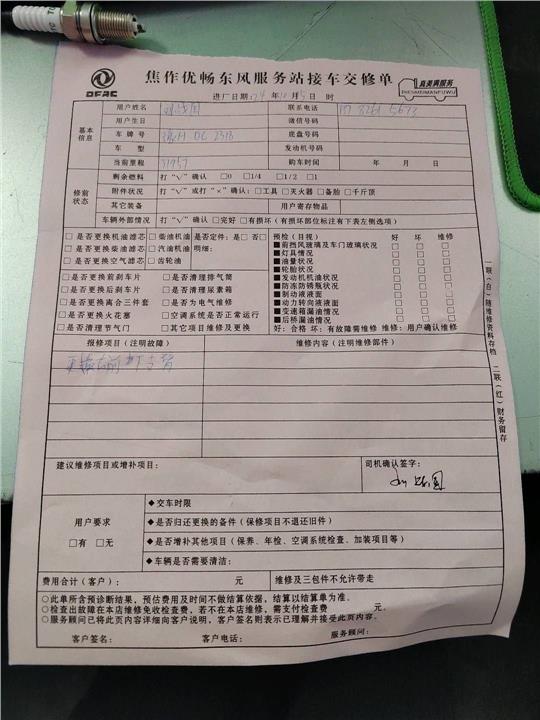 焦作优畅东风服务站接车交修单
真美满服务
ZHENMEIMANFUWU
DFAC
进厂日期:24 年11月5日 时
基本信息
用户姓名 联系电话
用户生日 微信号码
车牌号 底盘号码
车型 发动机号码
当前里程 31957 购车时间 年 月 日
修前状态
剩余燃料 打“√”确认 □0 □1/4 □1/2 □1
附件状况 打“√”或打“×”确认:□工具 □灭火器 □备胎 □千斤顶
其它装备 用户寄存物品
车辆外部情况 打“√”确认 □完好 □有损坏(有损坏部位标注有下表左侧选项)
□是否更换机油滤芯 □柴油机油 是否定件:是□ 否□
□是否更换柴油滤芯 □汽油机油 明细:
□是否更换空气滤芯 □齿轮油
□是否更换前刹车片 □是否清理排气筒
□是否更换后刹车片 □是否清理尿素箱
□是否更换离合三件套 □是否为电气维修
□是否更换火花塞 □空调系统是否正常运行
□是否清理节气门 □其它项目维修及更换
预检(目视) 好 坏 维修
■前挡风玻璃及车门玻璃状况 □ □ □
■灯具情况 □ □ □
■油量状况 □ □ □
■轮胎状况 □ □ □
■发动机机油状况 □ □ □
■防冻防锈瓶状况 □ □ □
■制动液液面 □ □ □
■动力转向液液面 □ □ □
■变速箱漏油情况 □ □ □
■后桥漏油情况 □ □ □
好:合格 坏:有故障需维修 维修:用户确认维修
报修项目(注明故障) 维修内容(注明维修部件)
更换右前
建议维修项目或增补项目: 司机确认签字:
用户要求
□有 □无
◆交车时限
◆是否归还更换的备件(保修项目不退还旧件)
◆是否增补其他项目(保养、年检、空调系统检查、加装项目等)
◆车辆是否需要清洁:
费用合计(客户): 元 维修及三包件不允许带走
○此单所含预诊断结果,预估费用及时间不做结算依据,结算以结算单为准。
○检查出故障在本店维修免收检查费,若不在本店维修,需支付检查费 元。
○服务顾问已将此页内容详细向客户说明,客户签名则表示已理解并接受此页内容。
客户签名: 客户电话: 服务顾问:
一联(白)随维修资料存档 二联(红)财务留存